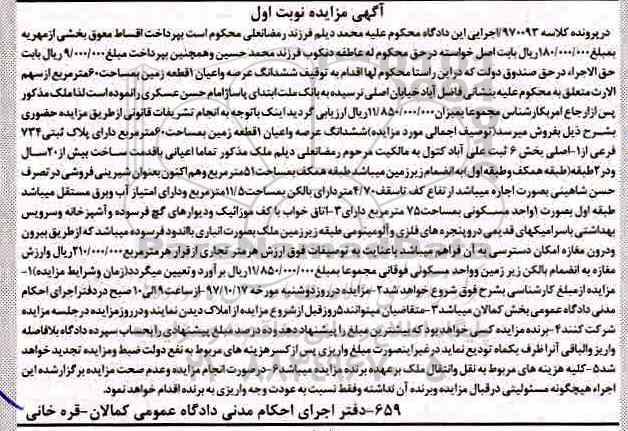 آگهی مزایده نوبت اول
درپرونده کلاسه ۹۷۰۰۹۳/اجرایی این دادگاه محکوم علیه محمد دیلم فرزند رمضانعلی محکوم است بپرداخت اقساط معوق بخشی ازمهریه
بمبلغ۱۸۰/۰۰۰/۰۰۰ریال بابت اصل خواسته درحق محکوم له عاطفه دنکوب فرزند محمد حسین وهمچنین بپرداخت مبلغ۹/۰۰۰/۰۰۰ ریال بابت
حق الاجراء درحق صندوق دولت که دراین راستا محکوم لها اقدام به توقیف ششدانگ عرصه واعیان ۱قطعه زمین بمساحت۶۰مترمربع ازسهم
الارث متعلق به محکوم علیه بنشانی فاضل آباد خیابان اصلی نرسیده به بانک ملت ابتدای پاساژامام حسن عسکری رانموده است لذا ملک مذکور
پس ازارجاع امربکارشناس مجموعا بمیزان ۱۱/۸۵۰/۰۰۰/۰۰۰ریال ارزیابی گردید اینک باتوجه به انجام تشریفات قانونی ازطریق مزایده حضوری
بشرح ذیل بفروش میرسد(توصیف اجمالی مورد مزایده)ششدانگ عرصه واعیان ۱قطعه زمین بمساحت۶۰مترمربع دارای پلاک ثبتی۷۳۴
فرعی از۱-اصلی بخش ۶ ثبت علی آباد کتول به مالکیت مرحوم رمضانعلی دیلم ملک مذکور تماما اعیانی باقدمت ساخت بیش از۲۰سال
ودر۲طبقه(طبقه همکف وطبقه اول)به انضمام زیرزمین میباشد طبقه همکف بمساحت۵۱مترمربع وهم اکنون بعنوان شیرینی فروشی در تصرف
حسن شاهینی بصورت اجاره میباشد ارتفاع کف تاسقف۴/۷۰متردارای بالکن بمساحت۱۱/۵مترمربع ودارای امتیاز آب وبرق مستقل میباشد
طبقه اول بصورت ۱واحد مسکونی بمساحت۷۵ مترمربع دارای۳-اتاق خواب با کف موزائیک ودیوارهای گچ فرسوده وآشپزخانه وسرویس
بهداشتی باسرامیکهای قدیمی درو پنجره های فلزی وآلومینومی طبقه زیرزمین ملک بصورت انباری بااندود فرسوده میباشد که ازطریق بیرون
ودرون مغازه امکان دسترسی به آن فراهم میباشد باعنایت به توصیفات فوق ارزش هرمتر تجاری از قرار هرمترمربع۲۱۰/۰۰۰/۰۰۰ریال وارزش
مغازه به انضمام بالکن زیر زمین وواحد مسکونی فوقانی مجموعا بمبلغ ۱۱/۸۵۰/۰۰۰/۰۰۰ریال برآورد وتعیین میگردد(زمان وشرایط مزایده)۱-
مزایده ازمبلغ کارشناسی بشرح فوق شروع خواهد شد۲-مزایده درروزدوشنبه مورخه ۹۷/۱۰/۱۷-ازساعت۹الی۱۰ صبح دردفتراجرای احکام
مدنی دادگاه عمومی بخش کمالان میباشد۳-متقاضیان میتوانند۵روزقبل ازشروع مزایده ازاملاک دیدن نمایند ودرروزمزایده درجلسه مزایده
شرکت کنند۴-برنده مزایده کسی خواهد بود که بیشترین مبلغ را پیشنهاد دهد وده درصد مبلغ پیشنهادی رابحساب سپرده دادگاه بلافاصله
واریز والباقی آنراظرف یکماه تودیع نماید درغیراینصورت مبلغ واریزی پس ازکسرهزینه های مربوط به نفع دولت ضبط ومزایده تجدید خواهد
شد۵-کلیه هزینه های مربوط به نقل وانتقال ملک برعهده برنده مزایده میباشد۶-درصورت انجام مزایده وعدم صحت مزایده برگزارشده این
اجراء هیچگونه مسئولیتی درقبال مزایده وبرنده آن نداشته وفقط نسبت به عودت وجه واریزی به برنده اقدام خواهد نمود.
۶۵۹-دفتر اجرای احکام مدنی دادگاه عمومی کمالان-قره خانی